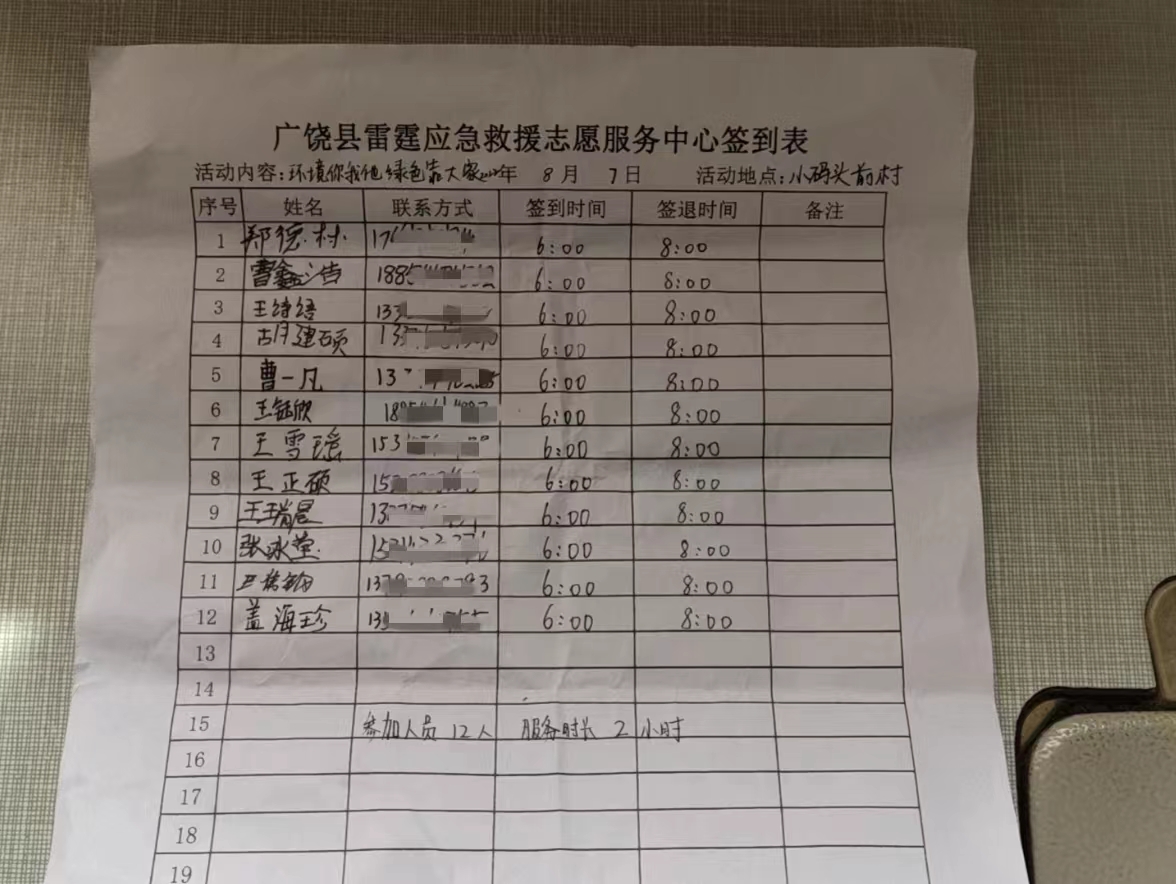 广饶县雷霆应急救援志愿服务中心签到表
活动内容:环境你我他绿色靠大家 年 8月 7日 活动地点:小码头前村
序号 姓名 联系方式 签到时间 签退时间 备注
1 郑德林 17 6:00 8:00
2 曹鑫浩 188 6:00 8:00
3 王诗语 133 6:00 8:00
4 胡建硕 13 6:00 8:00
5 曹一凡 13 6:00 8:00
6 王钰欣 18 6:00 8:00
7 王雪瑶 153 6:00 8:00
8 王正硕 15 6:00 8:00
9 王瑞晨 13 6:00 8:00
10 张冰莹 15 6:00 8:00
11 137 3 6:00 8:00
12 盖海珍 13 6:00 8:00
13
14
15 参加人员12人 服务时长2小时
16
17
18
19